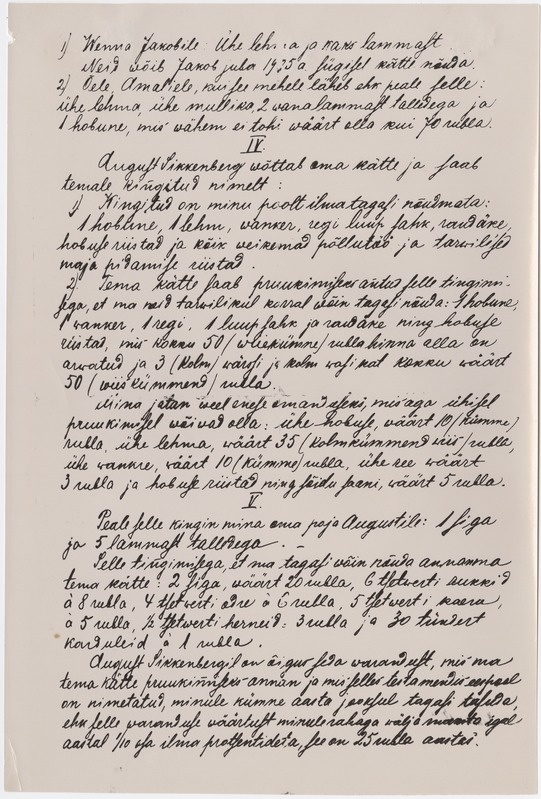 1) Wenna Jakobile: Ühe lehma ja kaks lammast.
Neid wõib Jakob juba 1925a sügisel kätte nõuda.
2) Õele, Amaliele, kui see mehele läheb ehk peale selle:
ühe lehma, ühe mullika, 2 wanalammast talledega ja
1 hobune, mis wähem ei tohi wäärt olla kui 70 rubla.
IV
August Sikkenberg wõttab oma kätte ja saab
temale kingitud nimelt:
1) Kingitud on minu poolt ilma tagasi nõudmata:
1 hobune, 1 lehm, wanker, regi luup sahk, raudäke,
hobuse riistad ja kõik weikemad põllutöö ja tarwilised
maja pidamise riistad.
2) Tema kätte saab pruukimiseks antud selle tingimi-
sega, et ma neid tarwilikul korral wõin tagasi nõuda: 1 hobune,
1 wanker, 1 regi, 1 luup sahk ja raudäke ning hobuse
riistad, mis kokku 50 / wiiekümne / rubla hinna alla on
arwatud ja 3 (kolm) wärssi ja kolm wasikat kokku wäärt
50 (wiiskümmend) rubla.
Mina jätan weel enese omanduseks, mis aga ühisel
pruukimisel wõiwad olla: ühe hobuse, wäärt 10 (kümme)
rubla, ühe lehma, wäärt 35 (kolmkümmend wiis) rubla,
ühe wankre, wäärt 10 (kümme) rubla, ühe ree wäärt
3 rubla ja hobuse riistad ning sõidu saani, wäärt 5 rubla.
V
Peale selle kingin mina oma poja Augustile: 1 siga
ja 5 lammast talledega. –
Selle tingimisega, et ma tagasi wõin nõuda annan ma
tema kätte: 2 siga, wäärt 20 rubla, 6 tsetwerti rukkid
à 8 rubla, 4 tsetwerti odre à 6 rubla, 5 tsetwerti kaera,
à 5 rubla, ½ tsetwerti herneid = 3 rubla ja 30 tündert
karduleid à 1 rubla.
August Sikkenbergil on õigus seda warandust, mis ma
tema kätte pruukimiseks annan ja mis selles testamendis
on nimetatud, minule kümne aasta jooksul tagasi tasuda,
ehk selle waranduse wäärtust minule rahaga wälja maksta igal
aastal 1/10 osa ilma protsentideta, see on 25 rubla aastas.